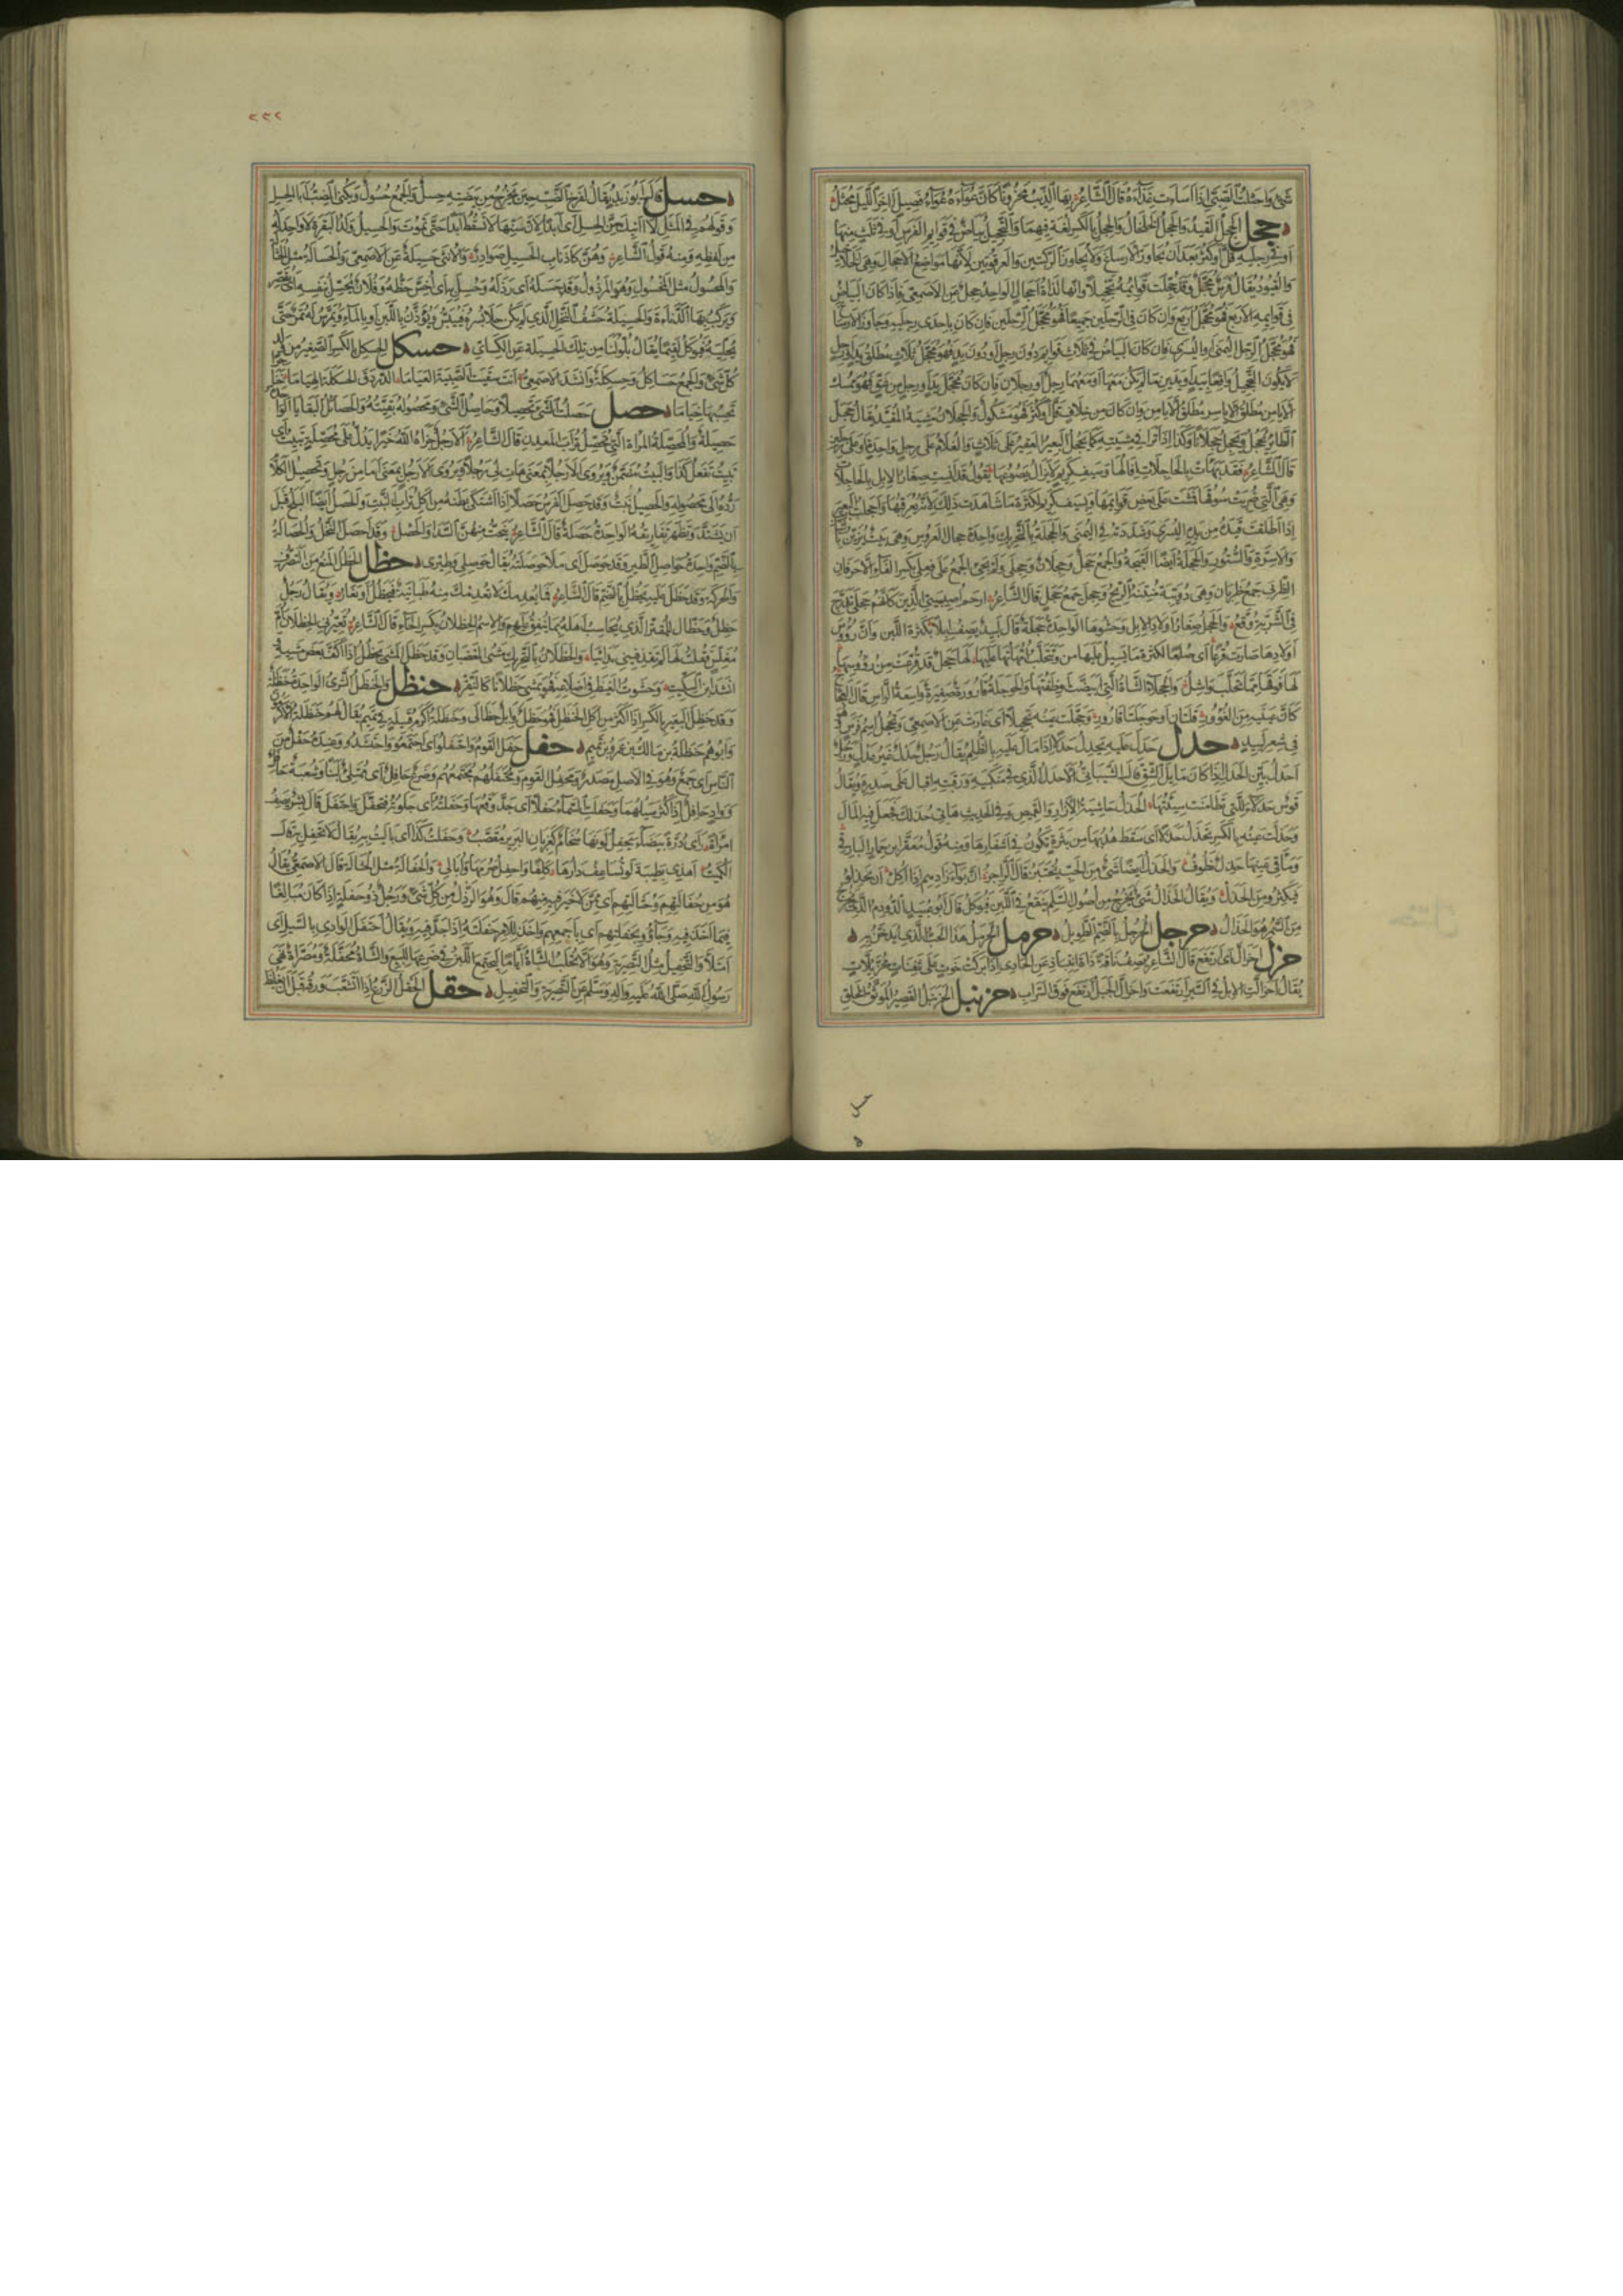 شئ واحثلت الصبى اذا اسأت غذاءه قال الشاعر بها الذئب محزونا كان عواءه عواء فصيل اخر الليل محثل
حجل الحجل القيد والحجل الخلخال والحجل بالكسر لغة فيهما والتحجيل بياض فى قوايم الفرس او فى ثلث منها
او فى رجليه قل او كثر بعد ان يجاوز الارساغ ولا يجاوز الركبتين والعرقوبين لانها مواضع الاحجال وهى الخلاخيل
والقيود يقال فرس محجل وقد حجلت قوايمه تحجيلا وانها لذات احجال الواحد حجل عن الاصمعى فاذا كان البياض
فى قوايمه الاربع فهو محجل اربع وان كان فى الرجلين جميعا فهو محجل الرجلين فان كان باحدى رجليه وجاوز الارساغ
فهو محجل الرجل اليمنى او اليسرى فان كان البياض فى ثلاث قوايم دون رجل او دون يد فهو محجل ثلاث مطلق يد او رجل
ولا يكون التحجيل واقعا بيد او يدين ما لم يكن معها او معهما رجل او رجلان فان كان محجل يد ورجل من شق فهو ممسك
الايامن مطلق الاياسر او ممسك الاياسر مطلق الايامن وان كان من خلاف قل او كثر فهو مشكول والحجلان مشية المقيد يقال حجل
الطاير يحجل ويحجل حجلانا وكذا اذا نزا فى مشيته كما يحجل البعير العقير على ثلاث والغلام على رجل واحدة او على رجلين
قال الشاعر فقد بهات بالحاجلات افالها وسيف كريم لا يزال يصوعها يقول قد انست صغار الابل بالحاجلات
وهى التى ضربت سوقها فمشت على بعض قوايمها وبسيف كريم لكثرة ما شاهدت ذلك لانه يعرقبها واحجلت البعير
اذا اطلقت قيده من يده اليسرى وشددته فى اليمنى والحجلة بالتحريك واحدة حجال العروس وهى بيت يزين بالثياب
والاسرة والستور والحجلة ايضا القبجة والجمع حجل وحجلان وحجلى ولم يجئ الجمع على فعلى بكسر الفاء الا حرفان
الظربى جمع ظربان وهى دويبة منتنة الريح وحجلى جمع حجل قال الشاعر ارحم اصيبيتى الذين كانهم حجلى تدرج
فى الشربة وقع والحجل صغار اولاد الابل وحشوها الواحدة حجلة قال لبيد يصف ابلا بكثرة اللبن وان رؤوس
اولادها صارت قرعا اى صلعا لكثرة ما يسيل عليها من لبنها وتتحلب امهاتها عليها لها حجل قد قرعت من رؤوسها
لها فوقها مما تحلب واشل والحجلاء الشاة التى ابيضت وظفتها والحوجلة قارورة صغيرة واسعة الراس قال العجاج
كان عينيه من الغؤور قلتان او حوجلتا قارور وحجلت عينه تحجيلا اى غارت عن الاصمعى وتحجل اسم فرس وهو
فى شعر لبيد حدل حدل عليه يحدل حدلا اذا مال عليه بالظلم يقال رجل حدل غير عدل ورجل
احدل بين الحدل اذا كان مايل الشق قال الشيبانى الاحدل الذى فى منكبيه ورقبته اقبال على صدره ويقال
قوس حدلاء للتى تطامنت سيتها الحذل حاشية الازار والقميص وفى الحديث هاتى حذلك فجعل فيه المال
وحذلت عينه بالكسر تحذل حذلا اى سقط هدبها من بثرة تكون فى اشفارها ومنه قول معقر بن حمار البارقى
وماقى عينها حذل نطوف والحذل ايضا شئ من الحب يختبز قال الراجز ان بواء زادهم اذا اكل ان يحذلوا
فيكثروا من الحذل ويقال الحذال شئ يخرج من اصول السلم ينقع فى اللبن فيوكل قال ابو عبيد الدودم الذى يخرج
من السمر هو الحذال حرجل الحرجل بالضم الطويل حرمل الحرمل هذا الحب الذى يدخن به
حزل احزأل اى ارتفع قال الشاعر يصف ناقة ذات انتباذ عن الحادى اذا بركت خوت على ثفنات محزئلات
يقال احزألت الابل فى السير ارتفعت واحزأل الجبل ارتفع فوق السراب حزنبل الحزنبل القصير الموثق الخلق
حسل
٢٢٢
حسل قال ابو زيد يقال لفرخ الضب حين يخرج من بيضته حسل والجمع حسول ويكنى الضب ابا الحسل
وقولهم فى المثل لا اتيك سن الحسل اى ابدا لان سنها لا تسقط ابدا حتى تموت والحسيل ولد البقرة لا واحد له
من لفظه ومنه قول الشاعر وهن كاذناب الحسيل صوادر والانثى حسيلة عن الاصمعى والحسالة مثل الحثالة
والمحسول مثل المخسول وهو المرذول وقد حسله اى رذله وحسل به اى اخس حظه وفلان يحسل بنفسه اى يقصر
ويركب بها الدناءة والحسيلة حشف النخل الذى لم يكن حلا بسره فييبس ويودن باللبن او بالماء ويمرس له تمر حتى
يحليه فيوكل لقيما يقال بلوا لنا من تلك الحسيلة عن الكسائى حسكل الحسكل بالكسر الصغير من ولد
كل شئ والجمع حساكل وحسكلة وانشد الاصمعى انت سقيت الصبية العياما الدردق الحسكلة الهياما
تحسبها خياما حصل حصلت الشئ تحصيلا وحاصل الشئ ومحصوله بقيته والحصائل البقايا الواحدة
حصيلة والمحصلة المراة التى تحصل تراب المعدن قال الشاعر الا رجل جزاه الله خيرا يدل على محصلة تبيت اى
تبيت تفعل كذا والبيت مضمن ويروى الا رجلا بمعنى هات لى رجلا ويروى الا رجل بمعنى اما من رجل وتحصيل الكلام
رده الى محصوله والحصيل نبت وقد حصل الفرس حصلا اذا اشتكى بطنه من اكل تراب النبت والحصل ايضا البلح قبل
ان يشتد وتظهر ثفاريقه الواحدة حصلة قال الشاعر ينحت منهن السدا والحصل وقد احصل النخل والحصالة
بالضم واحدة حواصل الطير وقد حوصل اى ملا حوصلته يقال حوصلى وطيرى حظل الحظل المنع من التصرف
والحركة وقد حظل عليه يحظل بالضم قال الشاعر فما يعدمك لا يعدمك منه طبانية فيحظل او يغار ويقال رجل
حظل وحظال للمقتر الذى يحاسب اهله بما ينفق عليهم والاسم الحظلان بكسر الحاء قال الشاعر تعيرنى الحظلان ام
مغلس فقلت لها لم تقذفينى بدائيا والحظلان بالتحريك مشى الغضبان وقد حظل المشى يحظل اذا كف بعض مشيه
انشد ابن السكيت وحشوت الغيظ فى اضلاعه فهو يمشى حظلانا كالنقر حنظل والحنظل الشرى الواحدة حنظلة
وقد حظل البعير بالكسر اذا اكثر من اكل الحنظل فهو حظل وابل حظالى وحنظلة اكرم قبيلة فى تميم يقال لهم حنظلة الاكرمون
وابوهم حنظلة بن مالك بن عمرو بن تميم حفل حفل القوم واحتفلوا اى اجتمعوا واحتشدوا وعنده حفل من
الناس اى جمع وهو فى الاصل مصدر ومحفل القوم ومحتفلهم مجتمعهم وضرع حافل اى ممتلئ لبنا وشعبة حافل
وواد حافل اذا كثر سيلهما وحفلت السماء حفلا اى جد وقعها وحفلته اى جلوته فتحفل واحتفل قال بشر يصف
امراة راى درة بيضاء يحفل لونها سخام كغربان البرير مقصب وحفلت كذا اى باليت به يقال لا تحفل به قال
الكميت اهذى بظبية لو تساعف دارها كلفا واحفل صرمها وابالى والحفالة مثل الحثالة قال الاصمعى يقال
هو من حفالتهم وحثالتهم اى ممن لا خير فيه منهم قال وهو الرذل من كل شئ ورجل ذو حفلة اذا كان مبالغا
فيما اخذ فيه وجاؤا بحفلتهم اى باجمعهم واخذ للامر حفلته اذا جد فيه ويقال احتفل الوادى بالسيل اى
امتلا والتحفيل مثل التصرية وهو الا تحلب الشاة اياما ليجتمع اللبن فى ضرعها للبيع والشاة محفلة ومصراة ونهى
رسول الله صلى الله عليه واله وسلم عن التصرية والتحفيل حقل الحقل الزرع اذا تشعب ورقه قبل ان يغلظ